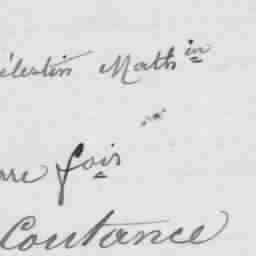 élestin Math in
are fois
Coutance